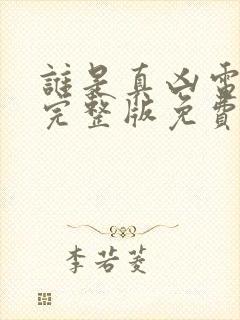 誰是真凶電
完整版免費
李若菱